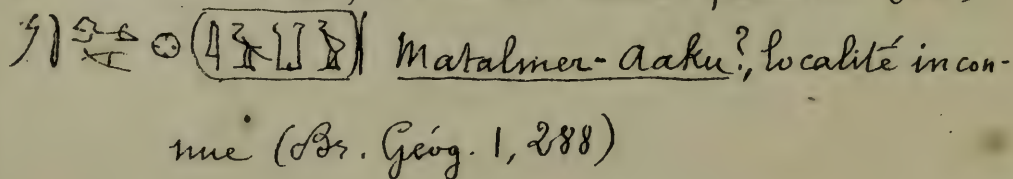 Matalmer-Aaku?, localité incon-
nue (Br. Géog. 1, 288)